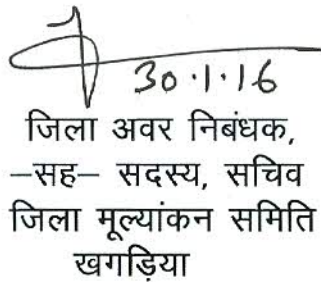 30.1.16
जिला अवर निबंधक,
–सह– सदस्य, सचिव
जिला मूल्यांकन समिति
खगड़िया